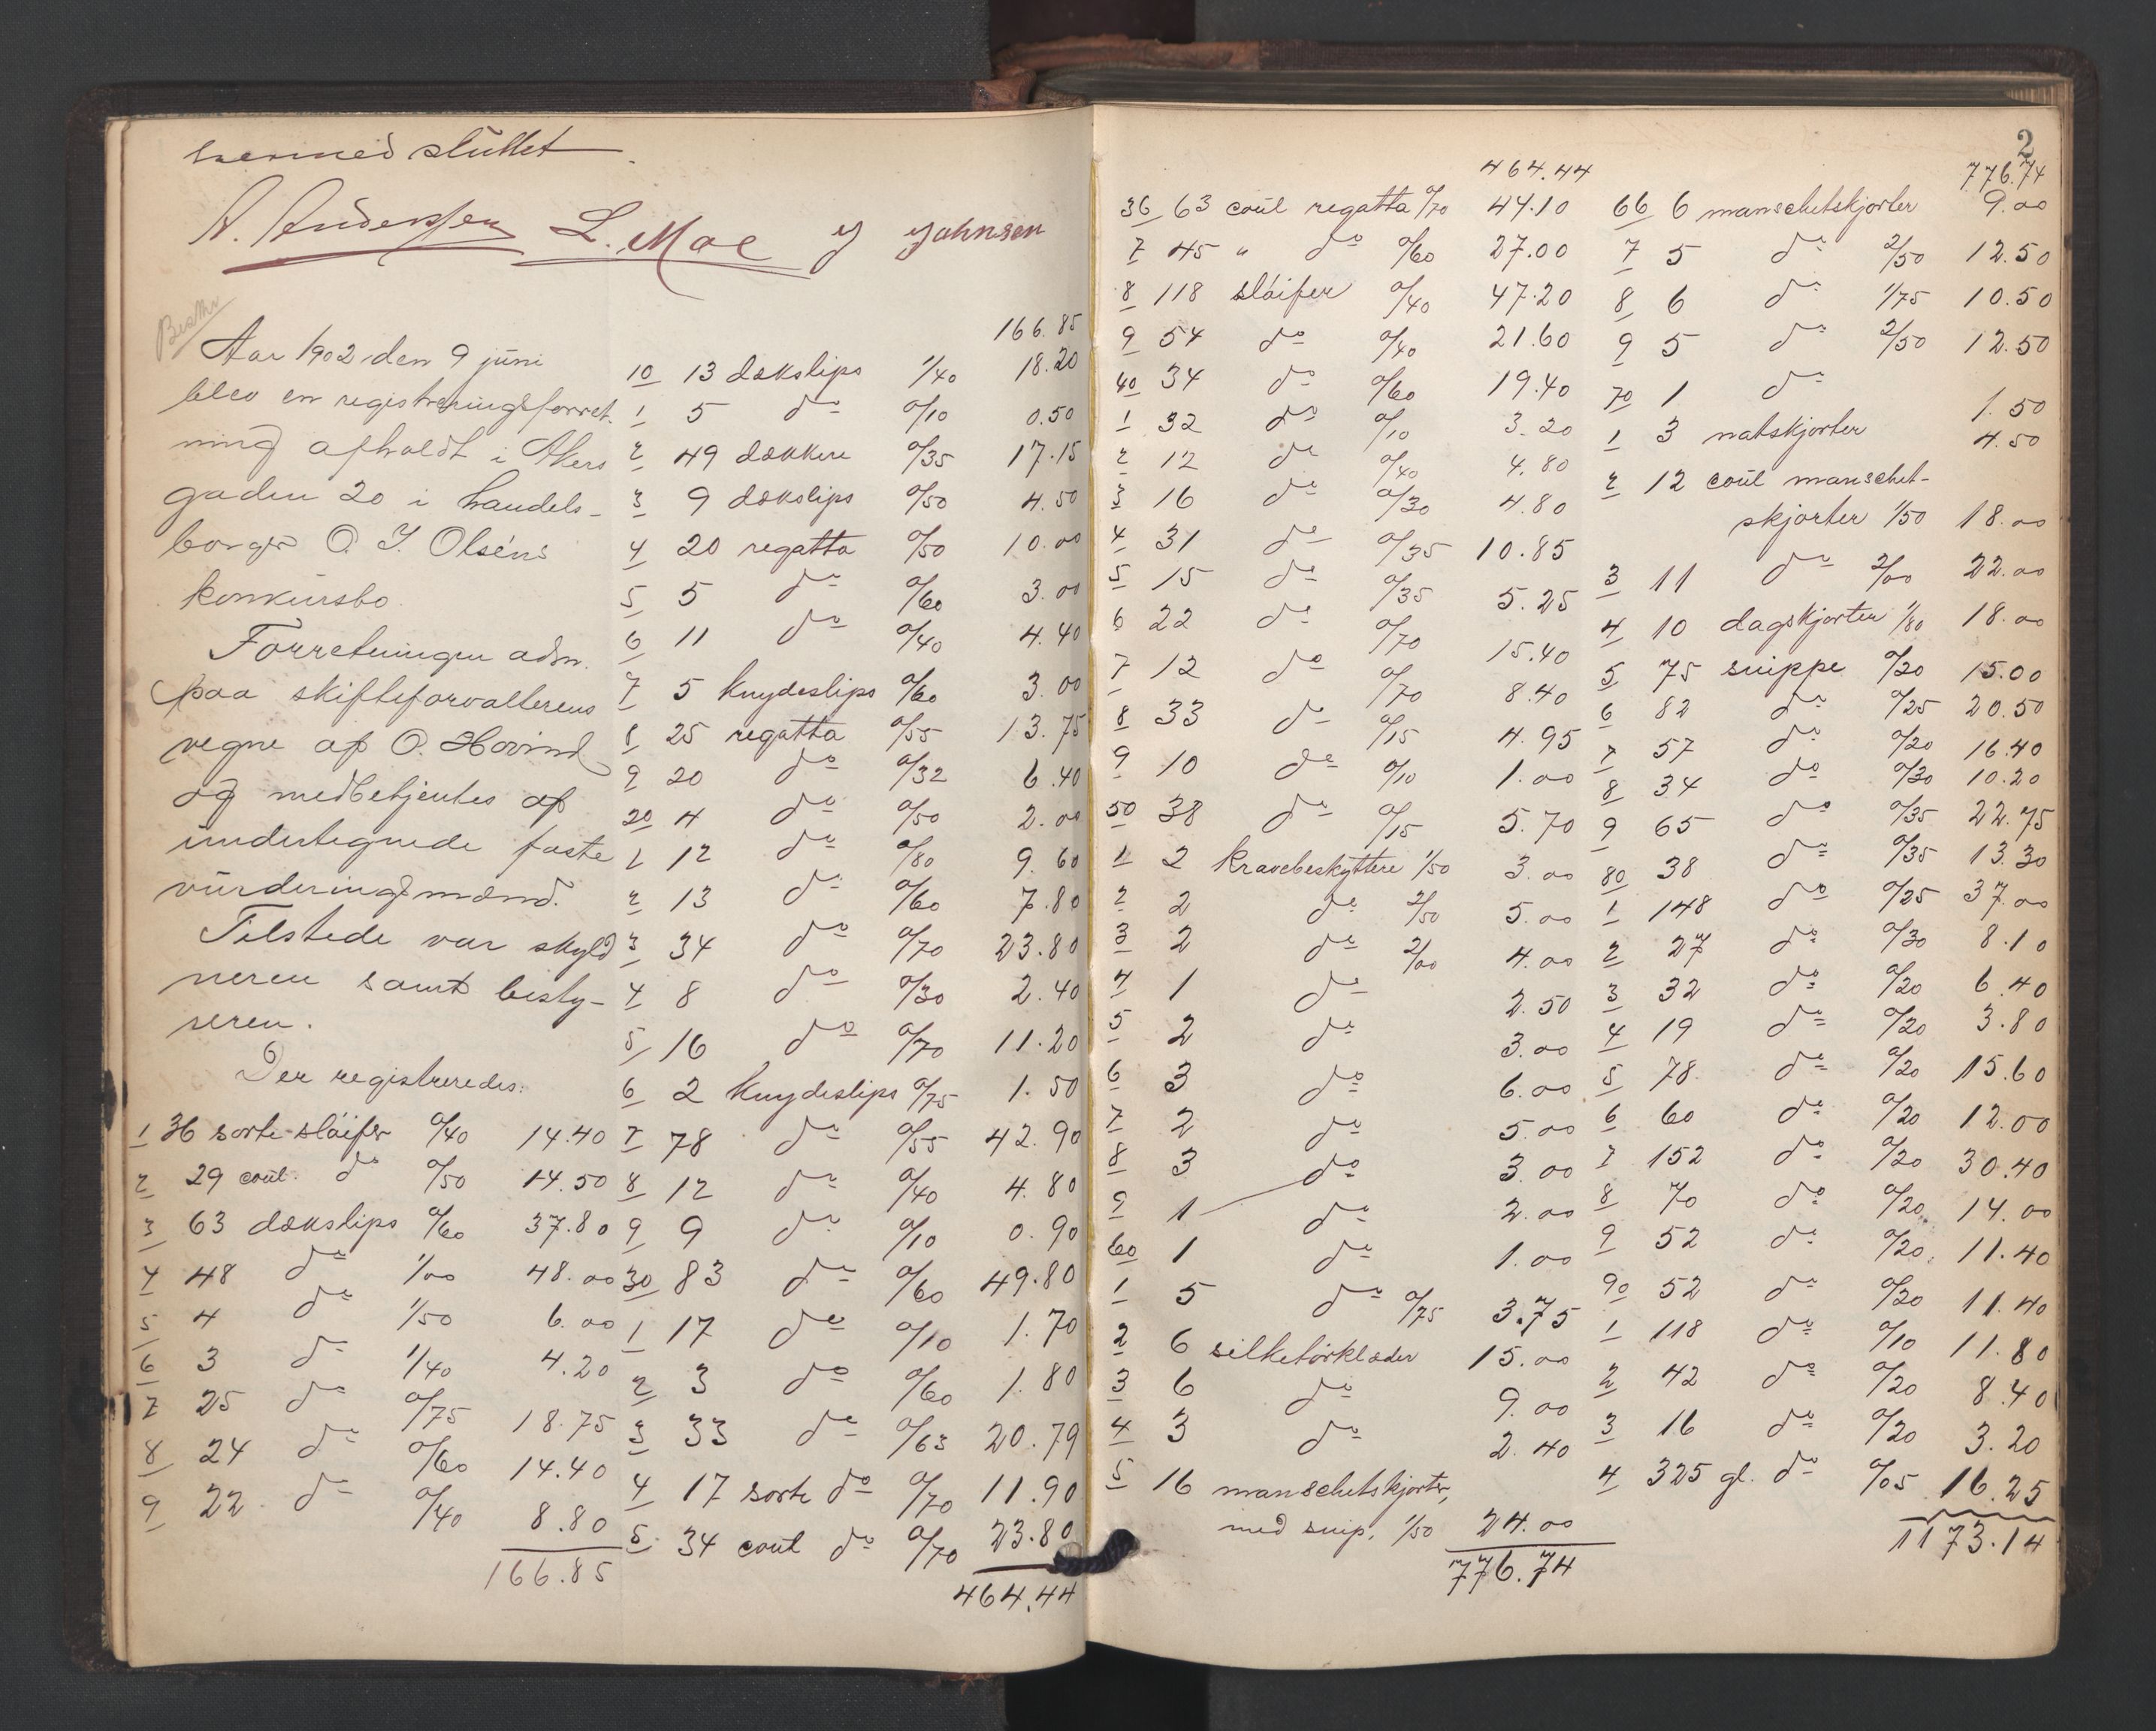 hermed sluttet
A. Anderssen L. Moe J Johnsen
Aar 1902 den 9 juni
blev en registreringsforret-
ning afholdt i Akers
gaden 20 i handels-
borger O. J. Olséns
konkursbo.
Forretningen adm.
paa skifteforvalterens
vegne af O. Hovind
og medbetjentes af
undertegnede faste
vurderingsmænd.
Tilstede var skyld
neren samt besty-
reren.
Der registreredes:
1 36 sorte sløifer 0/40 14.40
2 29 coul. do 0/50 14.50
3 63 dækslips 0/60 37.80
4 48 do 1/00 48.00
5 4 do 1/50 6.00
6 3 do 1/40 4.20
7 25 do 0/75 18.75
8 24 do 0/60 14.40
9 22 do 0/40 8.80
166.85
166.85
10 13 dækslips 1/40 18.20
1 5 do 0/10 0.50
2 49 dækkere 0/35 17.15
3 9 dækslips 0/50 4.50
4 20 regatta 0/50 10.00
5 5 do 0/60 3.00
6 11 do 0/40 4.40
7 5 knydeslips 0/60 3.00
8 25 regatta 0/55 13.75
9 20 do 0/32 6.40
20 4 do 0/50 2.00
1 12 do 0/80 9.60
2 13 do 0/60 7.80
3 34 do 0/70 23.80
4 8 do 0/30 2.40
5 16 do 0/70 11.20
6 2 knydeslips 0/75 1.50
7 78 do 0/55 42.90
8 12 do 0/40 4.80
9 9 do 0/10 0.90
30 83 do 0/60 49.80
1 17 do 0/10 1.70
2 3 do 0/60 1.80
3 33 do 0/63 20.79
4 17 sorte do 0/70 11.90
5 34 coul do 0/70 23.80
464.44
464.44
36 63 coul regatta 0/70 44.10
7 45 " do 0/60 27.00
8 118 sløifer 0/40 47.20
9 54 do 0/40 21.60
40 34 do 0/60 19.40
1 32 do 0/10 3.20
2 12 do 0/40 4.80
3 16 do 0/30 4.80
4 31 do 0/35 10.85
5 15 do 0/35 5.25
6 22 do 0/70 15.40
7 12 do 0/70 8.40
8 33 do 0/15 4.95
9 10 do 0/10 1.00
50 38 do 0/15 5.70
1 2 kravebeskyttere 1/50 3.00
2 2 do 2/50 5.00
3 2 do 2/00 4.00
4 1 do 2.50
5 2 do 3.00
6 3 do 6.00
7 2 do 5.00
8 3 do 3.00
9 1 do 2.00
60 1 do 1.00
1 5 do 0/75 3.75
2 6 silketørklæder 15.00
3 6 do 9.00
4 3 do 2.40
5 16 manschetskjorter,
med snip, 1/50 24.00
776.74
2
776.74
66 6 manschetskjorter 9.00
7 5 do 2/50 12.50
8 6 do 1/75 10.50
9 5 do 2/50 12.50
70 1 do 1.50
1 3 natskjorter 4.50
2 12 coul manschet-
skjorter 1/50 18.00
3 11 do 2/00 22.00
4 10 dagskjorter 1/80 18.00
5 75 snippe 0/20 15.00
6 82 do 0/25 20.50
7 57 do 0/20 16.40
8 34 do 0/30 10.20
9 65 do 0/35 22.75
80 38 do 0/35 13.30
1 148 do 0/25 37.00
2 27 do 0/30 8.10
3 32 do 0/20 6.40
4 19 do 0/20 3.80
5 78 do 0/20 15.60
6 60 do 0/20 12.00
7 152 do 0/20 30.40
8 70 do 0/20 14.00
9 52 do 0/20 11.40
90 52 do 0/20 11.40
1 118 do 0/10 11.80
2 42 do 0/20 8.40
3 16 do 0/20 3.20
4 325 gl. do 0/05 16.25
1173.14